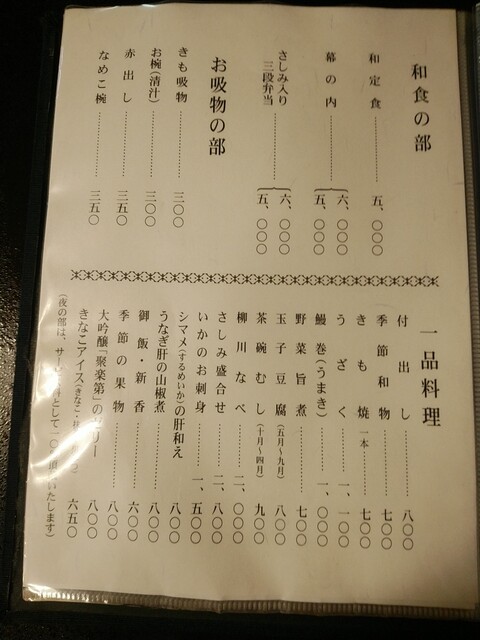 和食の部
和定食 五、〇〇〇
幕の内 六、〇〇〇
五、〇〇〇
さしみ入り
三段弁当 六、〇〇〇
五、〇〇〇
お吸物の部
きも吸物 三〇〇
お椀(清汁) 三〇〇
赤出し 三五〇
なめこ椀 三五〇
一品料理
付出し 八〇〇
季節和物 七〇〇
きも焼 一本 七〇〇
うざく 一、一〇〇
鰻巻(うまき) 一、〇〇〇
野菜旨煮 七〇〇
玉子豆腐(五月〜九月) 八〇〇
茶碗むし(十月〜四月) 九〇〇
柳川なべ 二、〇〇〇
さしみ盛合せ 二、八〇〇
いかのお刺身 一、五〇〇
シマメ(するめいか)の肝和え 八〇〇
うなぎ肝の山椒煮 八〇〇
御飯・新香 六〇〇
季節の果物 八〇〇
大吟醸「聚楽第」のゼリー 八〇〇
きなこアイス(きなこ・ 六五〇
(夜の部は、サー として一〇 頂 いたします)